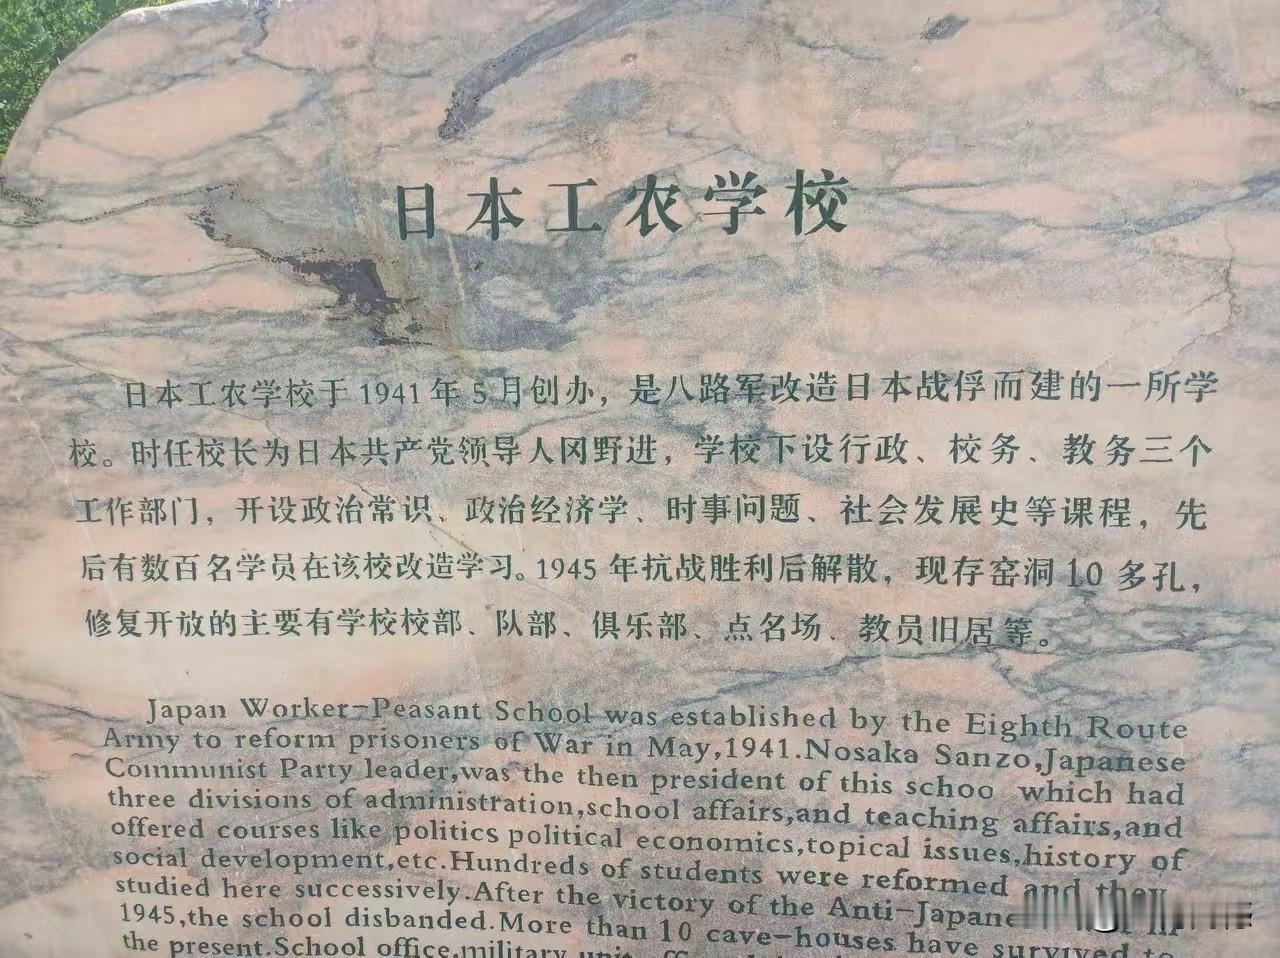 日本工农学校
日本工农学校于1941年5月创办，是八路军改造日本战俘而建的一所学
校。时任校长为日本共产党领导人冈野进，学校下设行政、校务、教务三个
工作部门，开设政治常识、政治经济学、时事问题、社会发展史等课程，先
后有数百名学员在该校改造学习。1945年抗战胜利后解散，现存窑洞10多孔，
修复开放的主要有学校校部、队部、俱乐部、点名场、教员旧居等。
Japan Worker-Peasant School was established by the Eighth Route
Army to reform prisoners of War in May,1941.Nosaka Sanzo,Japanese
Communist Party leader,was the then president of this schoo which had
three divisions of administration,school affairs,and teaching affairs,and
offered courses like politics political economics,topical issues,history of
social development,etc.Hundreds of students were reformed and they
studied here successively.After the victory of the Anti-Japane in
1945,the school disbanded.More than 10 cave-houses have survived to
the present.School office,military unit